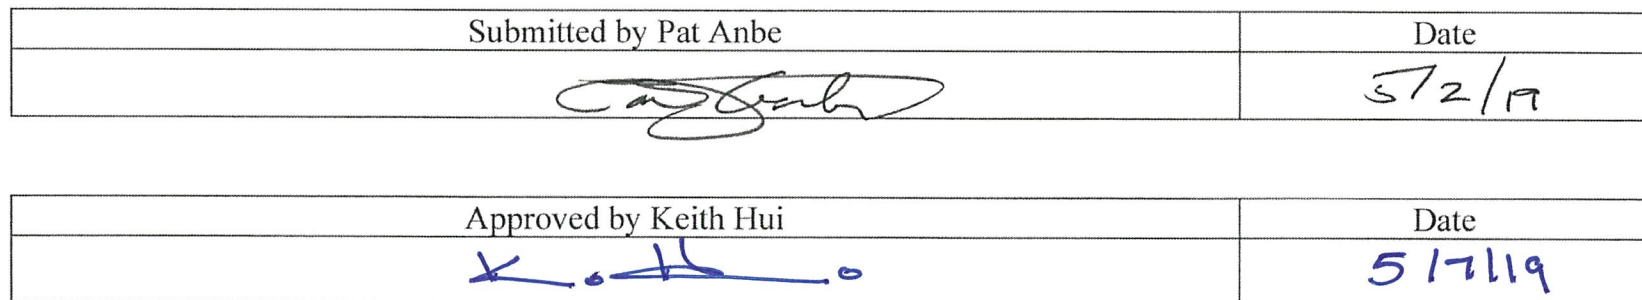 Submitted by Pat Anbe Date
5/2/19
Approved by Keith Hui Date
5/7/19